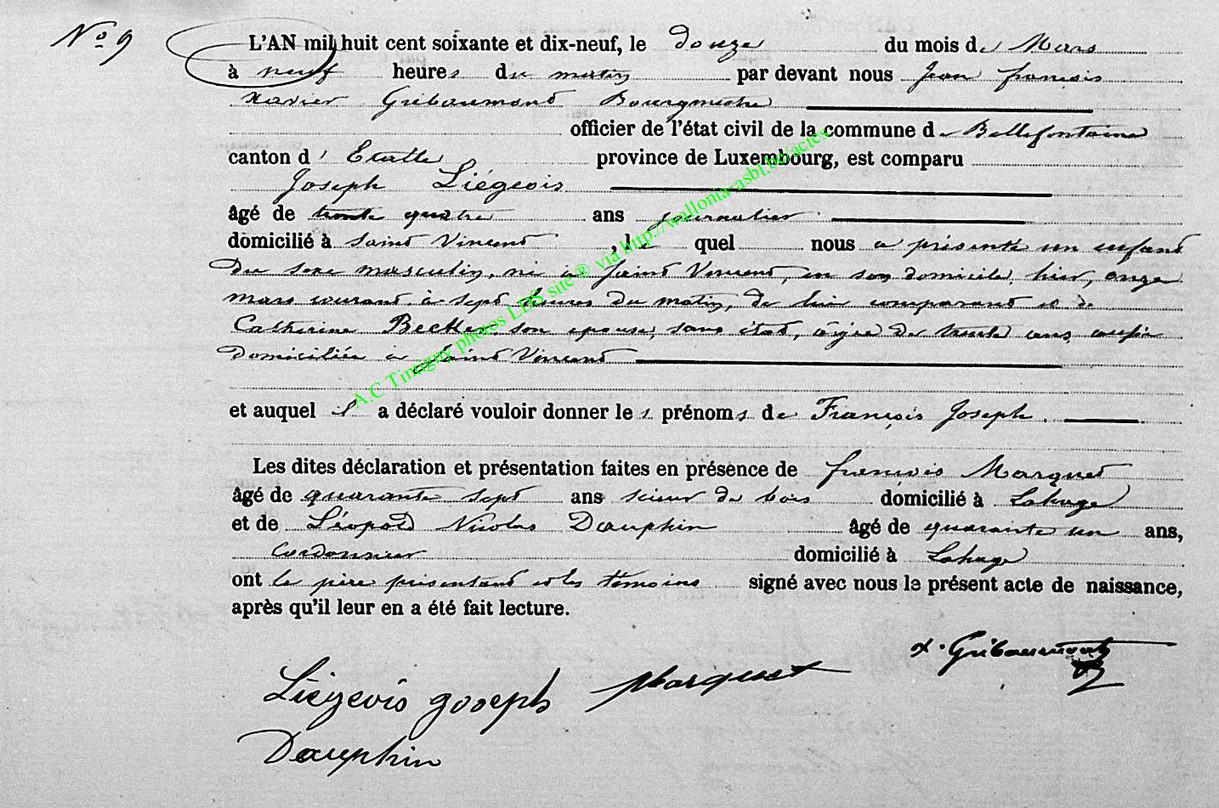 N° 9
L'AN mil huit cent soixante et dix-neuf, le douze du mois de Mars
à neuf heures du matin par devant nous Jean françois
Xavier Gribaumont Bourgmestre
officier de l'état civil de la commune de Bellefontaine
canton d'Etalle province de Luxembourg, est comparu
Joseph Liégeois
âgé de trente quatre ans journalier
domicilié à Saint Vincent, le quel nous a présenté un enfant
du sexe masculin, né à Saint Vincent, en son domicile, hier, onze
mars courant, à sept heures du matin, de lui comparant et de
Catherine Becker, son épouse, sans état, âgée de trente ans, aussi
domiciliée à Saint Vincent
et auquel il a déclaré vouloir donner les prénoms de François Joseph
Les dites déclaration et présentation faites en présence de françois Marquet
âgé de quarante sept ans scieur de bois domicilié à Lahage
et de Léopold Nicolas Dauphin âgé de quarante un ans,
cordonnier domicilié à Lahage
ont le père présentant et les témoins signé avec nous le présent acte de naissance,
après qu'il leur en a été fait lecture.
x. Gribaumont
Liégeois joseph Marquet
Dauphin
A.C Tintigny photos LDS site® via http://wallonia-asbl.be/actex